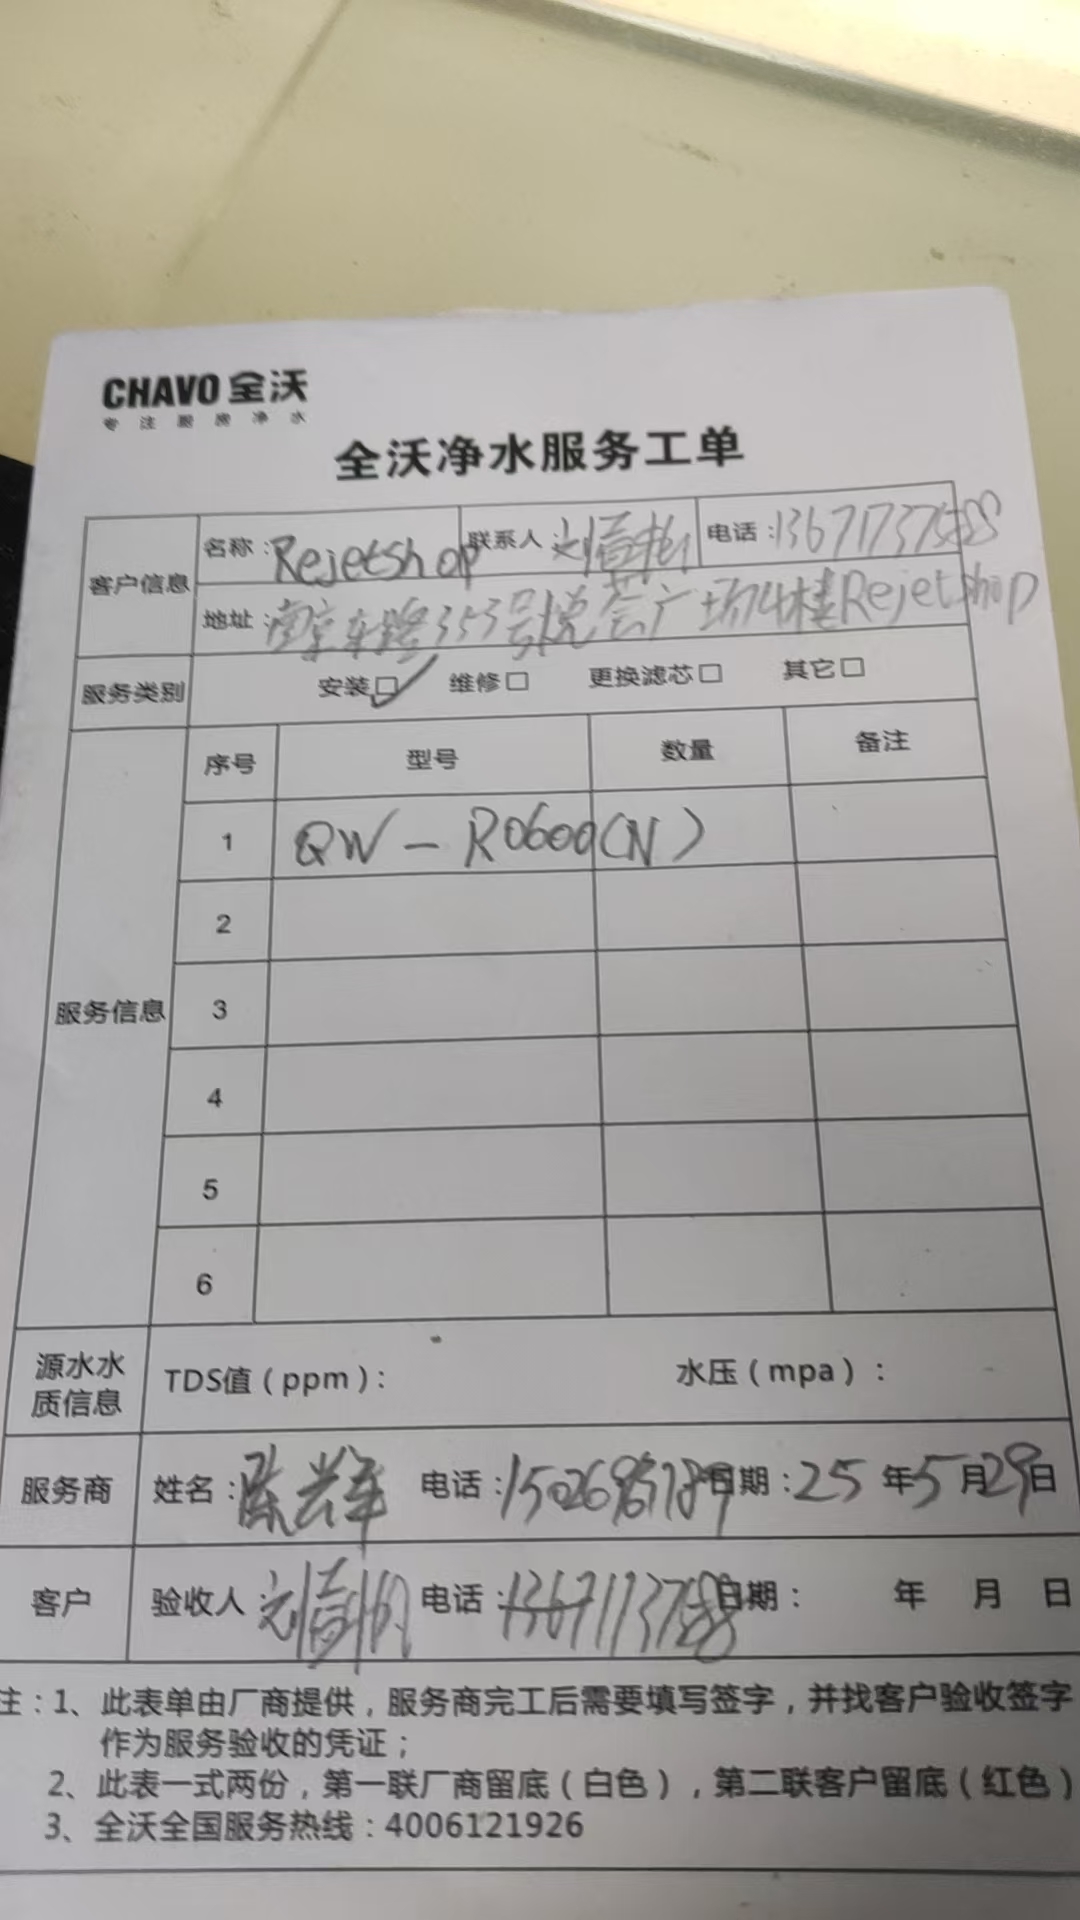 CHAVO 全沃
专注厨房净水
全沃净水服务工单
客户信息
名称：Rejetshop 联系人：刘 电话：
地址：南京东路353号悦荟广场4楼Rejetshop
服务类别 安装☑ 维修□ 更换滤芯□ 其它□
服务信息
序号 型号 数量 备注
1 QW-RO600(N)
2
3
4
5
6
源水水质信息 TDS值（ppm）： 水压（mpa）：
服务商 姓名：陈 电话： 日期：25年5月29日
客户 验收人：刘 电话： 日期： 年 月 日
注：1、此表单由厂商提供，服务商完工后需要填写签字，并找客户验收签字
作为服务验收的凭证；
2、此表一式两份，第一联厂商留底（白色），第二联客户留底（红色）
3、全沃全国服务热线：4006121926